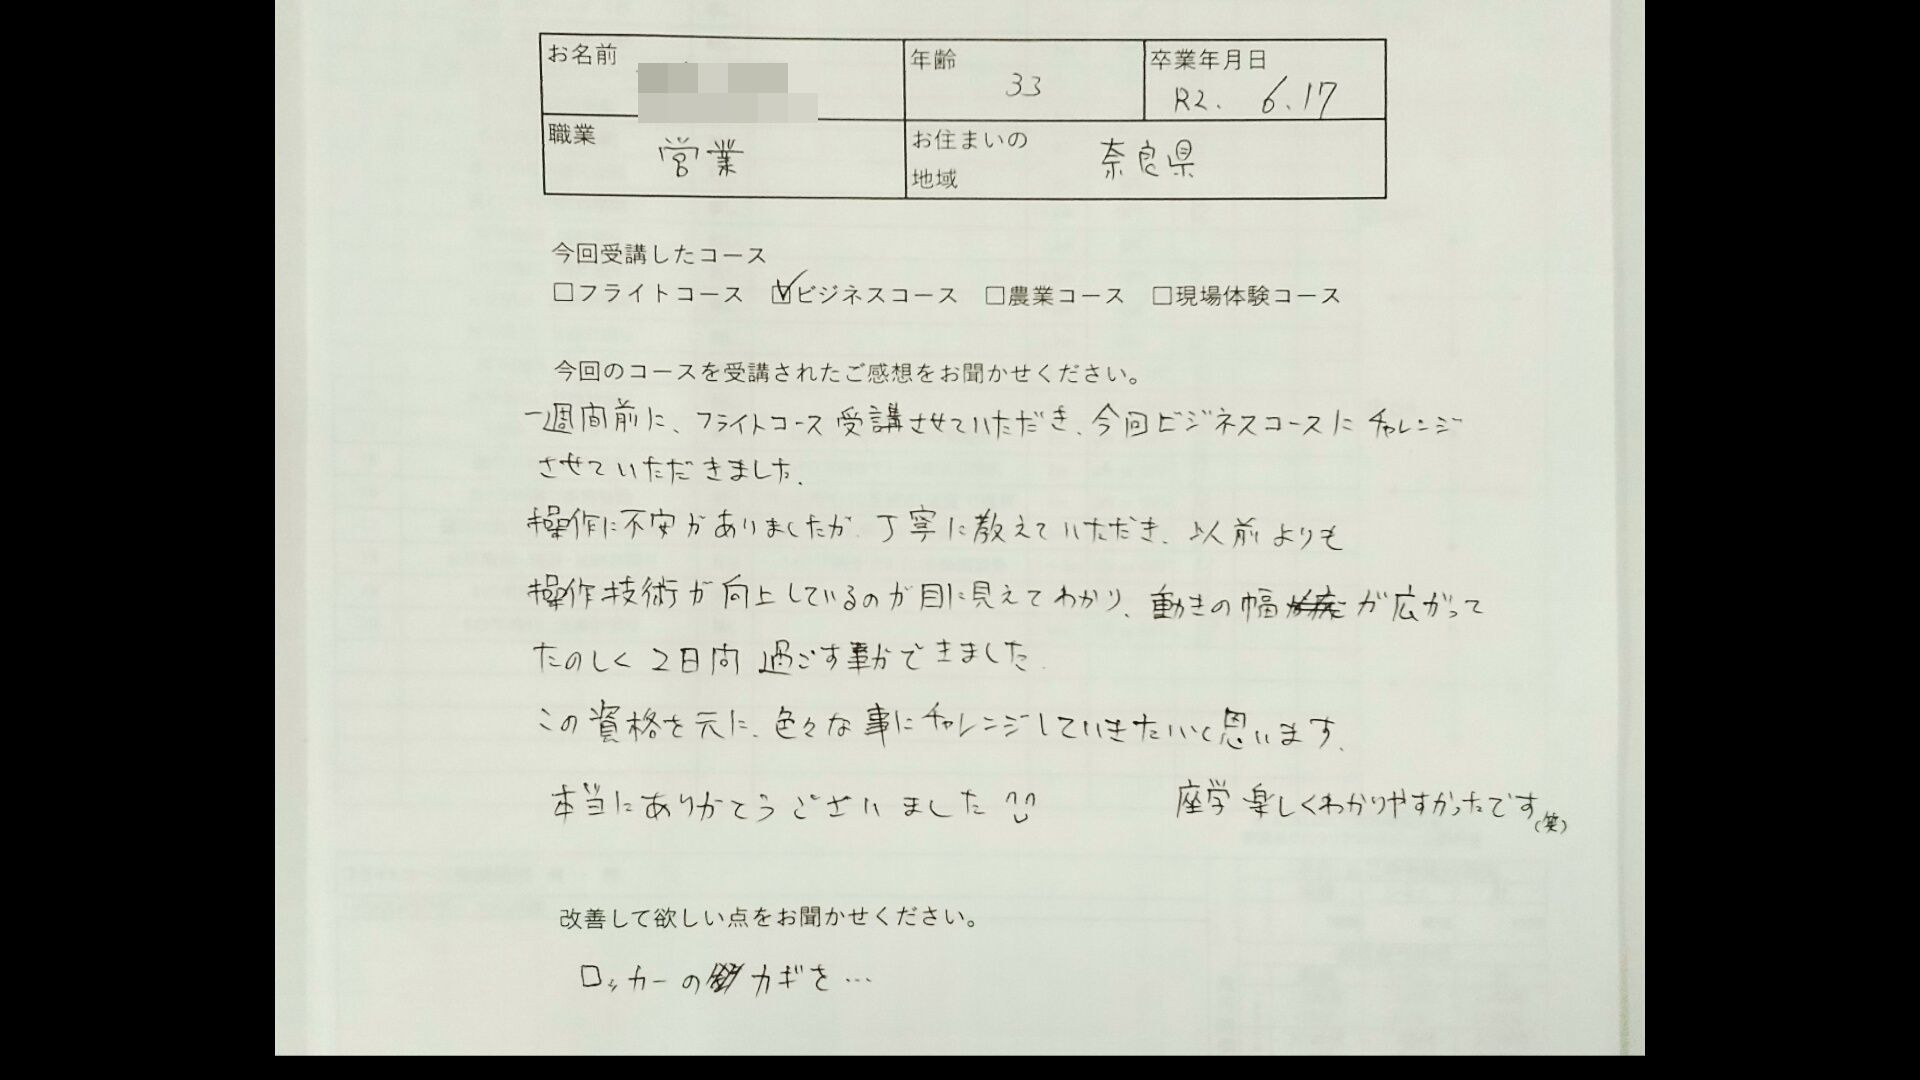 お名前
年齢 33
卒業年月日 R2. 6.17
職業 営業
お住まいの
地域 奈良県
今回受講したコース
□フライトコース ☑ビジネスコース □農業コース □現場体験コース
今回のコースを受講されたご感想をお聞かせください。
一週間前に、フライトコース受講させていただき、今回ビジネスコースにチャレンジ
させていただきました。
操作に不安がありましたが、丁寧に教えていただき、以前よりも
操作技術が向上しているのが目に見えてわかり、動きの幅が広がって
たのしく2日間過ごす事ができました。
この資格を元に、色々な事にチャレンジしていきたいと思います。
本当にありがとうございました
座学楽しくわかりやすかったです(笑)
改善して欲しい点をお聞かせください。
ロッカーのカギを…